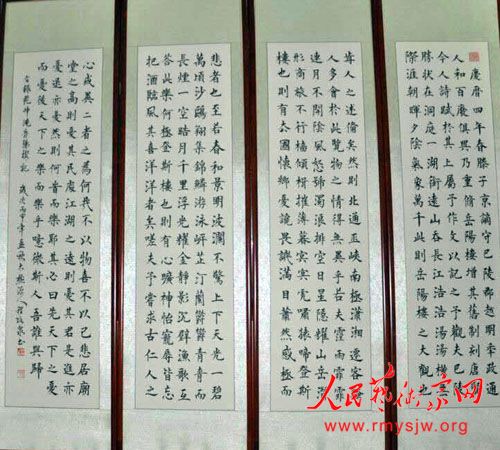 慶曆四年春滕子京謫守巴陵郡越明年政通
人和百廢俱興乃重修岳陽樓增其舊制刻唐賢
今人詩賦於其上屬予作文以記之予觀夫巴陵
勝狀在洞庭一湖銜遠山吞長江浩浩湯湯橫無
際涯朝暉夕陰氣象萬千此則岳陽樓之大觀也
前人之述備矣然則北通巫峽南極瀟湘遷客騷
人多會於此覽物之情得無異乎若夫霪雨霏霏
連月不開陰風怒號濁浪排空日星隱耀山岳潛
形商旅不行檣傾楫摧薄暮冥冥虎嘯猿啼登斯
樓也則有去國懷鄉憂讒畏譏滿目蕭然感極而
悲者也至若春和景明波瀾不驚上下天光一碧
萬頃沙鷗翔集錦鱗游泳岸芷汀蘭鬱鬱青青而
長煙一空皓月千里浮光耀金靜影沉璧漁歌互
答此樂何極登斯樓也則有心曠神怡寵辱皆忘
把酒臨風其喜洋洋者矣嗟夫予嘗求古仁人之
心或異二者之為何哉不以物喜不以己悲居廟
堂之高則憂其民處江湖之遠則憂其君是進亦
憂退亦憂然則何時而樂耶其必曰先天下之憂
而憂後天下之樂而樂乎噫微斯人吾誰與歸
右錄范仲淹岳陽樓記 歲次丙申年
人民藝術家網
www.rmysjw.org